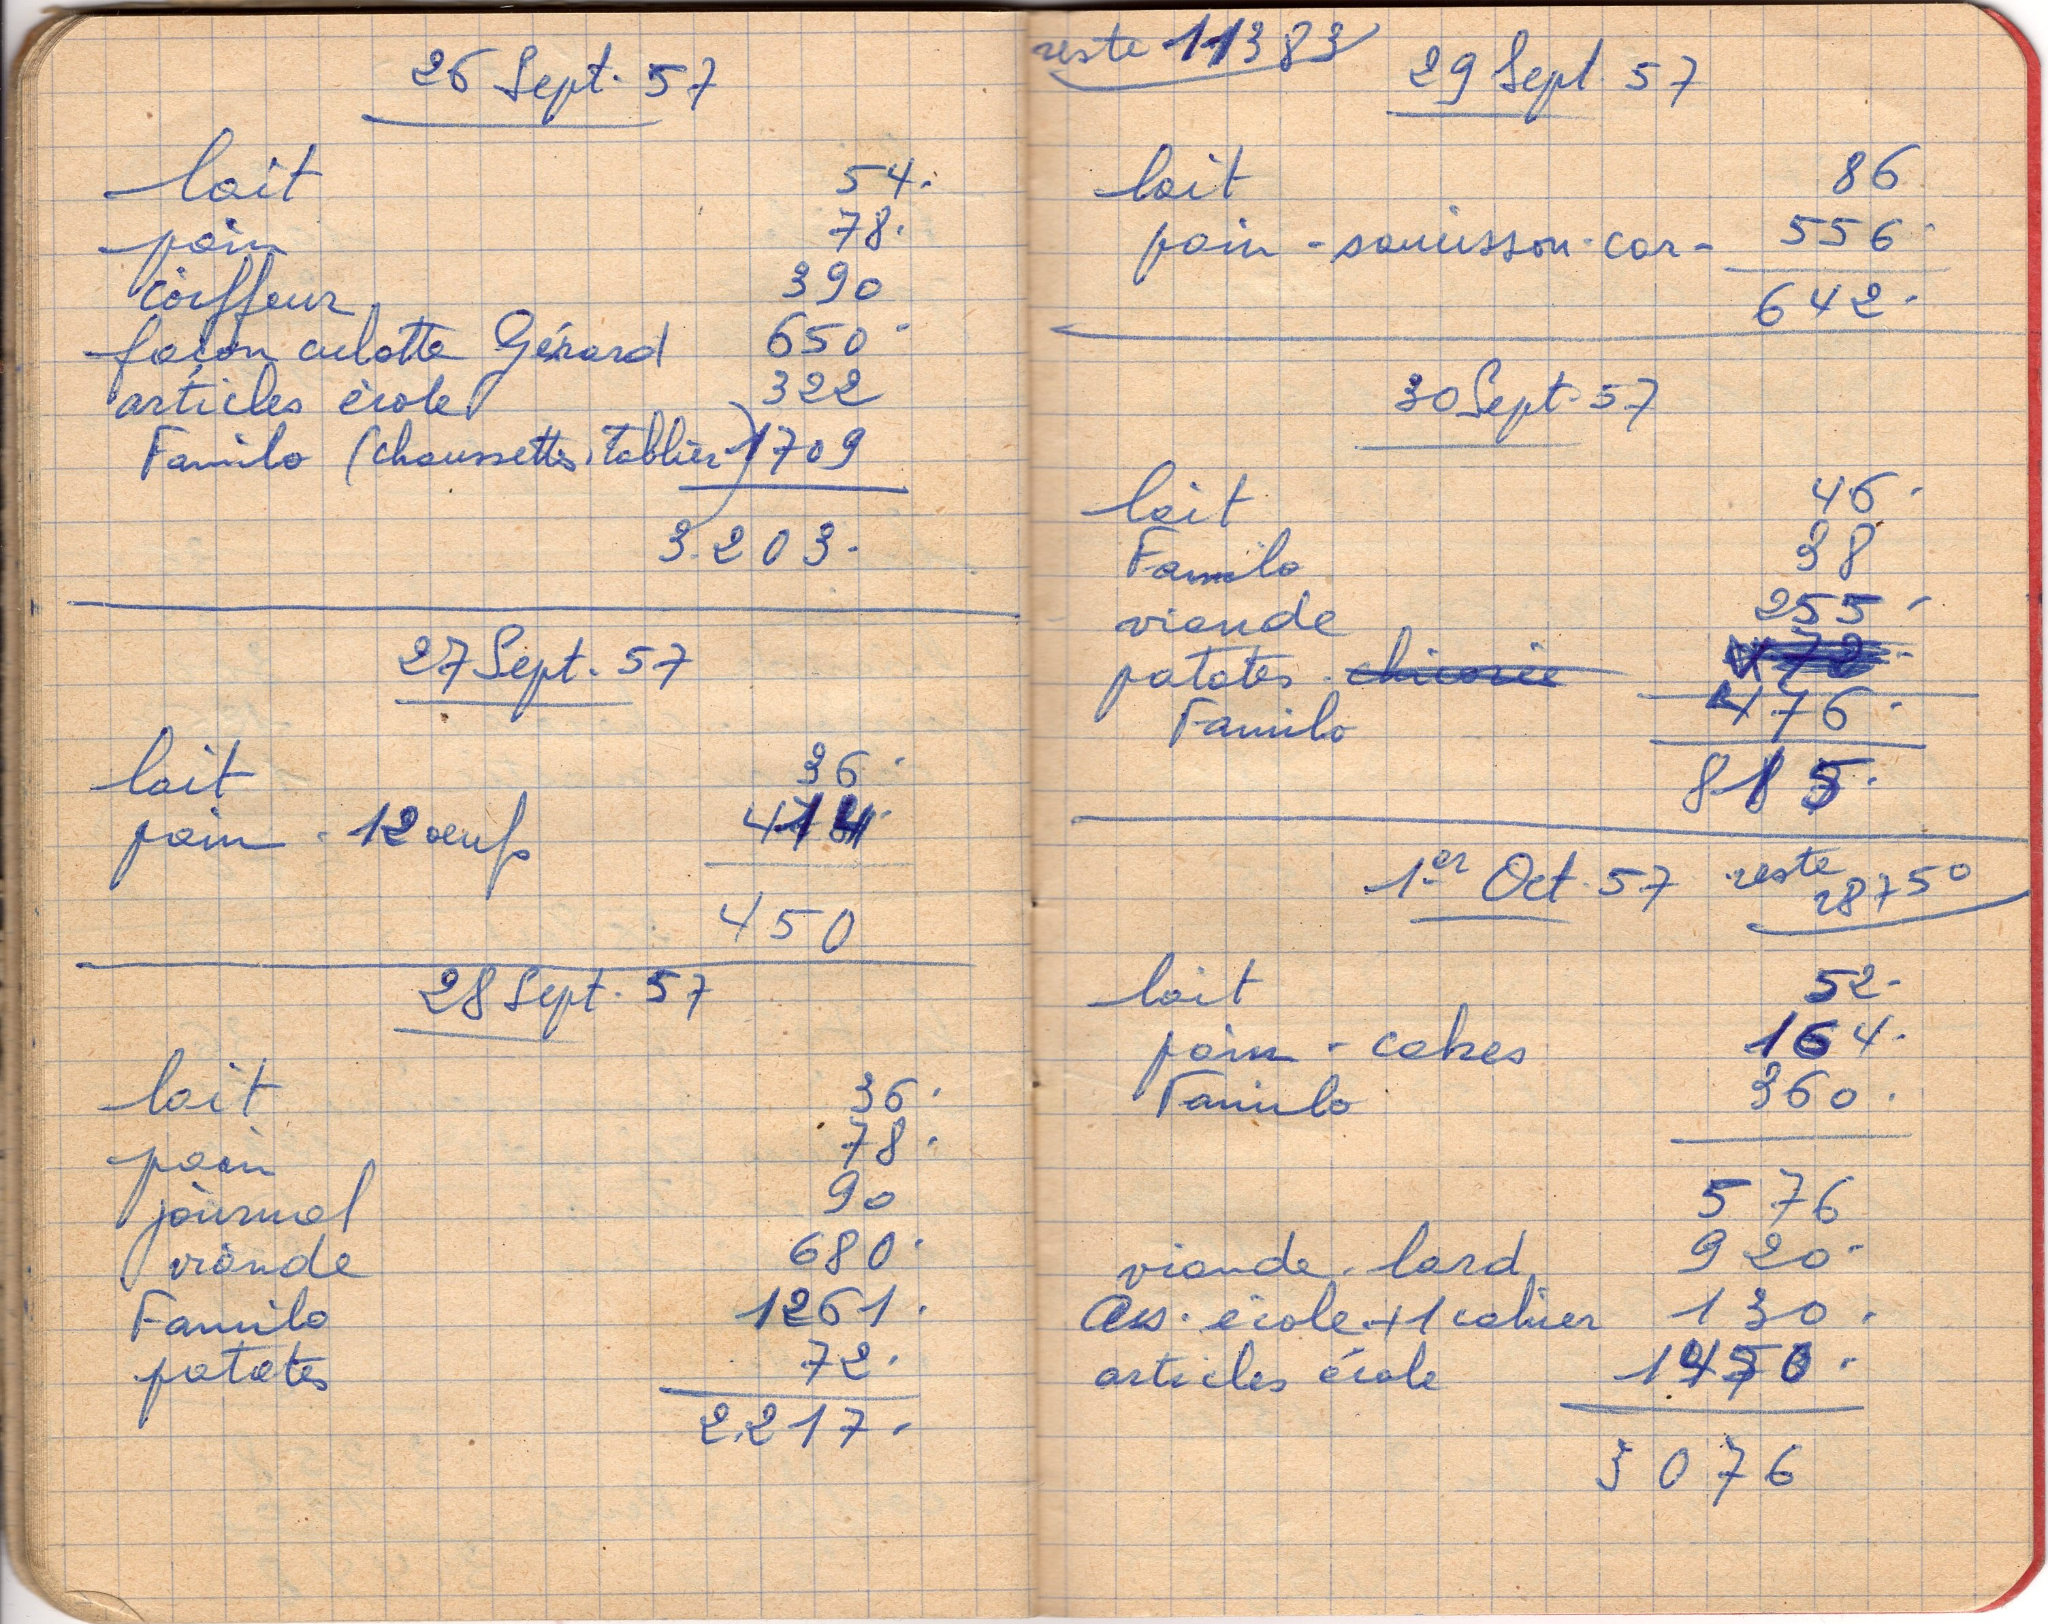 26 Sept. 57
lait 54.
pain 78.
coiffeur 390
façon culotte Gérard 650.
articles école 322
Familo (chaussettes, tablier) 1709
3.203.
27 Sept. 57
lait 36.
pain - 12 oeufs 414.
450
28 Sept. 57
lait 36.
pain 78.
journal 90
viande 680.
Familo 1261.
patates 72.
2.217.
reste 11383
29 Sept. 57
lait 86
pain - saucisson - car - 556.
642.
30 Sept. 57
lait 46.
Familo 38
viande 255.
patates - chicorée 72.
Familo 476.
815.
1er Oct. 57 reste 28750
lait 52.
pain - cakes 164.
Familo 360.
576
viande - lard 920.
Ass. école + 1 cahier 130.
articles école 1450.
3076